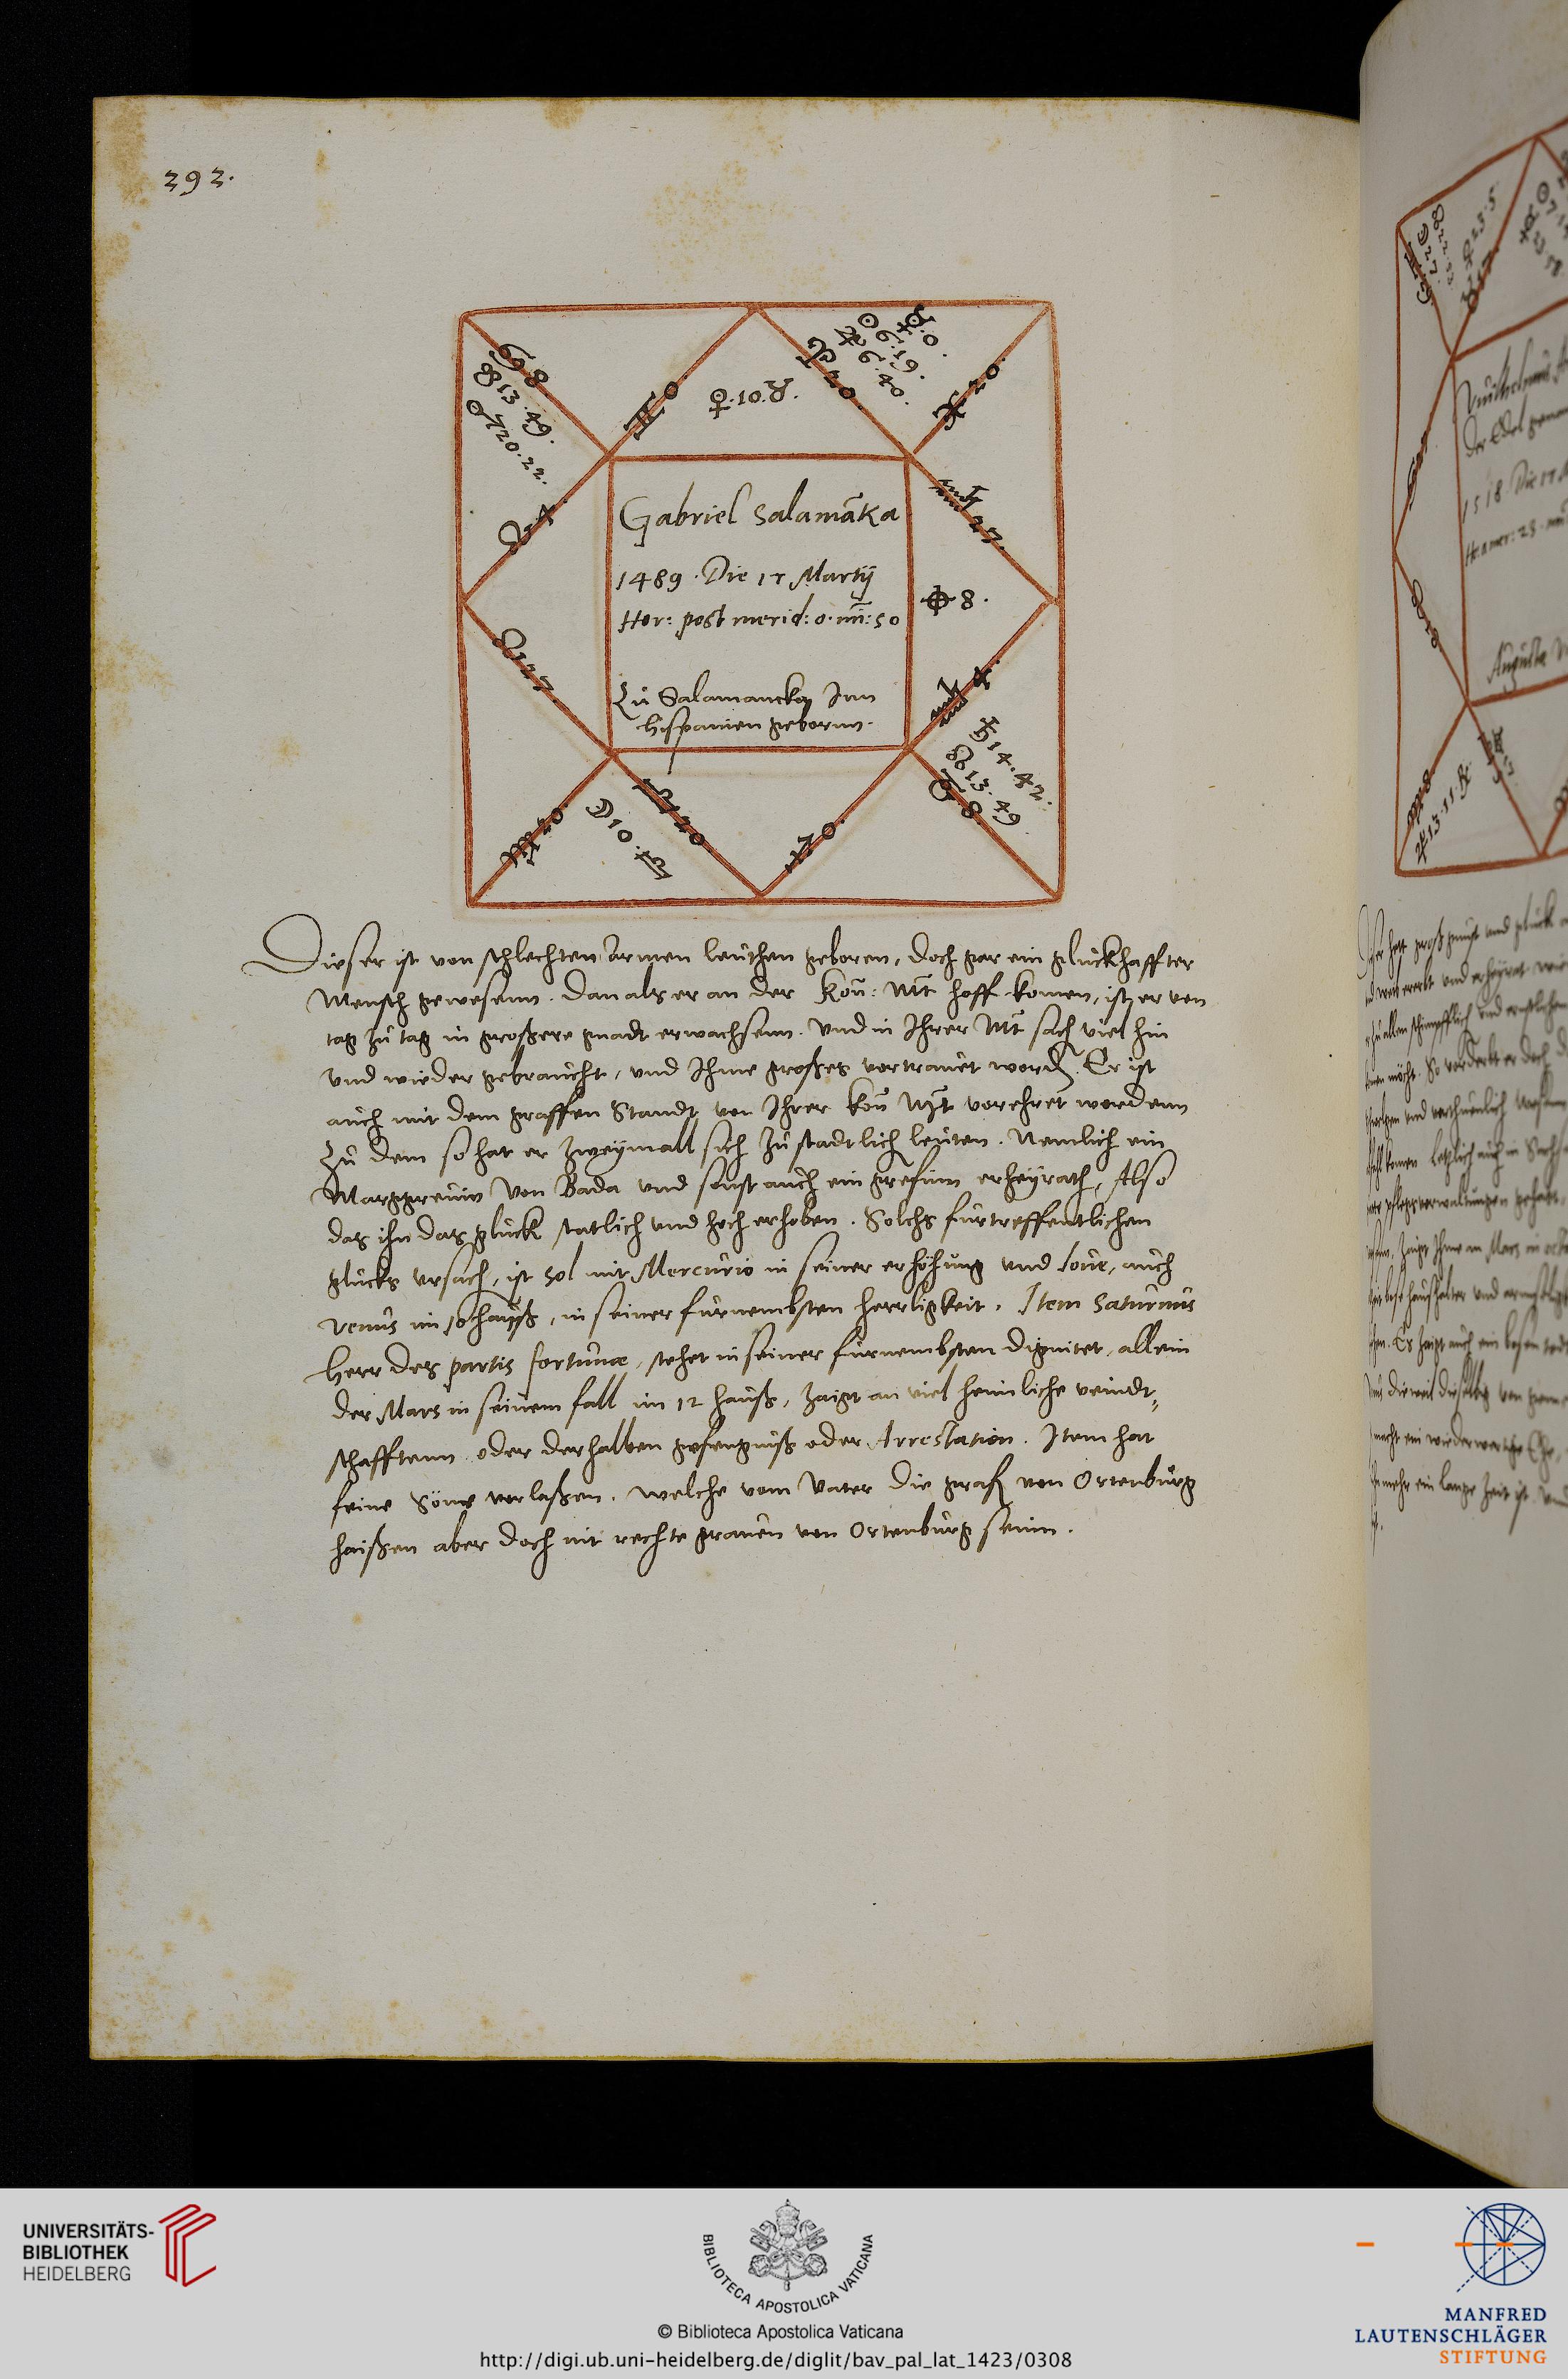 292.
♋ 8
☋ 13.49.
♂ 20.22.
♊ 0.
♀.10.♉.
♈ 20.
♃ 6.40.
☉ 6.19.
☿.0.
♓ 20.
♌ 4.
♒ 27.
Gabriel Salamãka
1489. Die 17 Martij
Hor: post merid: 0. mĩ: 50
Zu Salamancka Inn
hispanien gebornn.
⊕ 8.
♌ 27.
♒ 4.
♄ 14.42.
☊ 13.49
♑ 8.
♍ 20.
☽ 10.♎
♎ 20
♐ 0.
Dieser ist von schlechten Armen leuthen geboren, doch gar ein gluckhaffter
Mensch gewesenn. Dan als er an der Kön: Mt hoff komen, ist er von
tag zu tag in großere gnadt erwachsenn. Und in Ihrer Mt sach viel hin
und wieder gebraucht, und Ihme großes vertrauet word. Er ist
auch mit dem graffen Standt von Ihrer Kön Mt verehret wordenn
Zu dem so hat er zweymall sich zu stadtlich leuten. Nemlich ein
Marggreuin von Bada und sonst auch ein grefinn erheyrath, Also
das ihn das gluck statlich und hoch erhoben. Solchs furtreffentlichen
glucks ursach, ist Sol mit Mercurio in seiner erhöhung und Ioue, auch
Venus im 10 hauß, in seiner furnembsten herrligkeit. Item Saturnus
herr des partis fortunæ, stehet in seiner furnembsten dignitet, allein
der Mars in seinem fall im 12 hauß, zaigt an viel heimliche veindt,,
schafftenn oder derhalben gefengnuß oder Arrestation. Item hat
feine Söne verlaßen. welche vom Vater die graf von Ortenburg
haißen aber doch nit rechte grauen von Ortenburg seinn.
UNIVERSITÄTS-
BIBLIOTHEK
HEIDELBERG
BIBLIOTECA APOSTOLICA VATICANA
© Biblioteca Apostolica Vaticana
http://digi.ub.uni-heidelberg.de/diglit/bav_pal_lat_1423/0308
MANFRED
LAUTENSCHLÄGER
STIFTUNG